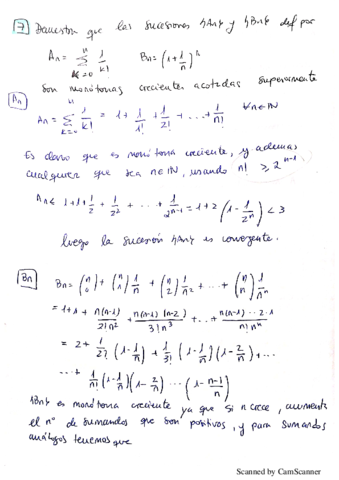 7 Demostrar que las sucesiones {An} y {Bn} def por
An = n∑k=0 1/k!   Bn = (1 + 1/n)^n
son monótonas crecientes acotadas superiormente
An
An = n∑k=0 1/k! = 1 + 1/1! + 1/2! + ... + 1/n!   ∀n∈ℕ
Es claro que es monótona creciente, y además
cualquier que sea n∈ℕ, usando n! ≥ 2^(n-1)
An ≤ 1+1+1/2 + 1/2² + ... + 1/2^(n-1) = 1+2(1 - 1/2^n) < 3
luego la sucesión {An} es convergente.
Bn
Bn = (n 0) + (n 1) 1/n + (n 2) 1/n² + ... + (n n) 1/n^n
= 1+1 + n(n-1)/2!n² + n(n-1)(n-2)/3!n³ + ... + n(n-1)...2·1/n!n^n
= 2 + 1/2! (1 - 1/n) + 1/3! (1 - 1/n)(1 - 2/n) + ...
... + 1/n! (1 - 1/n)(1 - 2/n) ... (1 - n-1/n)
{Bn} es monótona creciente ya que si n crece, aumenta
el nº de sumandos que son positivos, y para sumandos
análogos tenemos que
Scanned by CamScanner